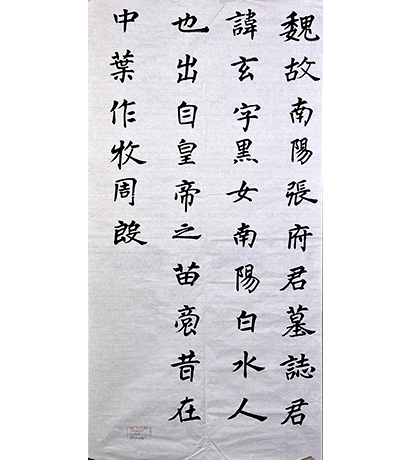 魏故南陽張府君墓誌君
諱玄字黑女南陽白水人
也出自皇帝之苗裔昔在
中葉作牧周殷